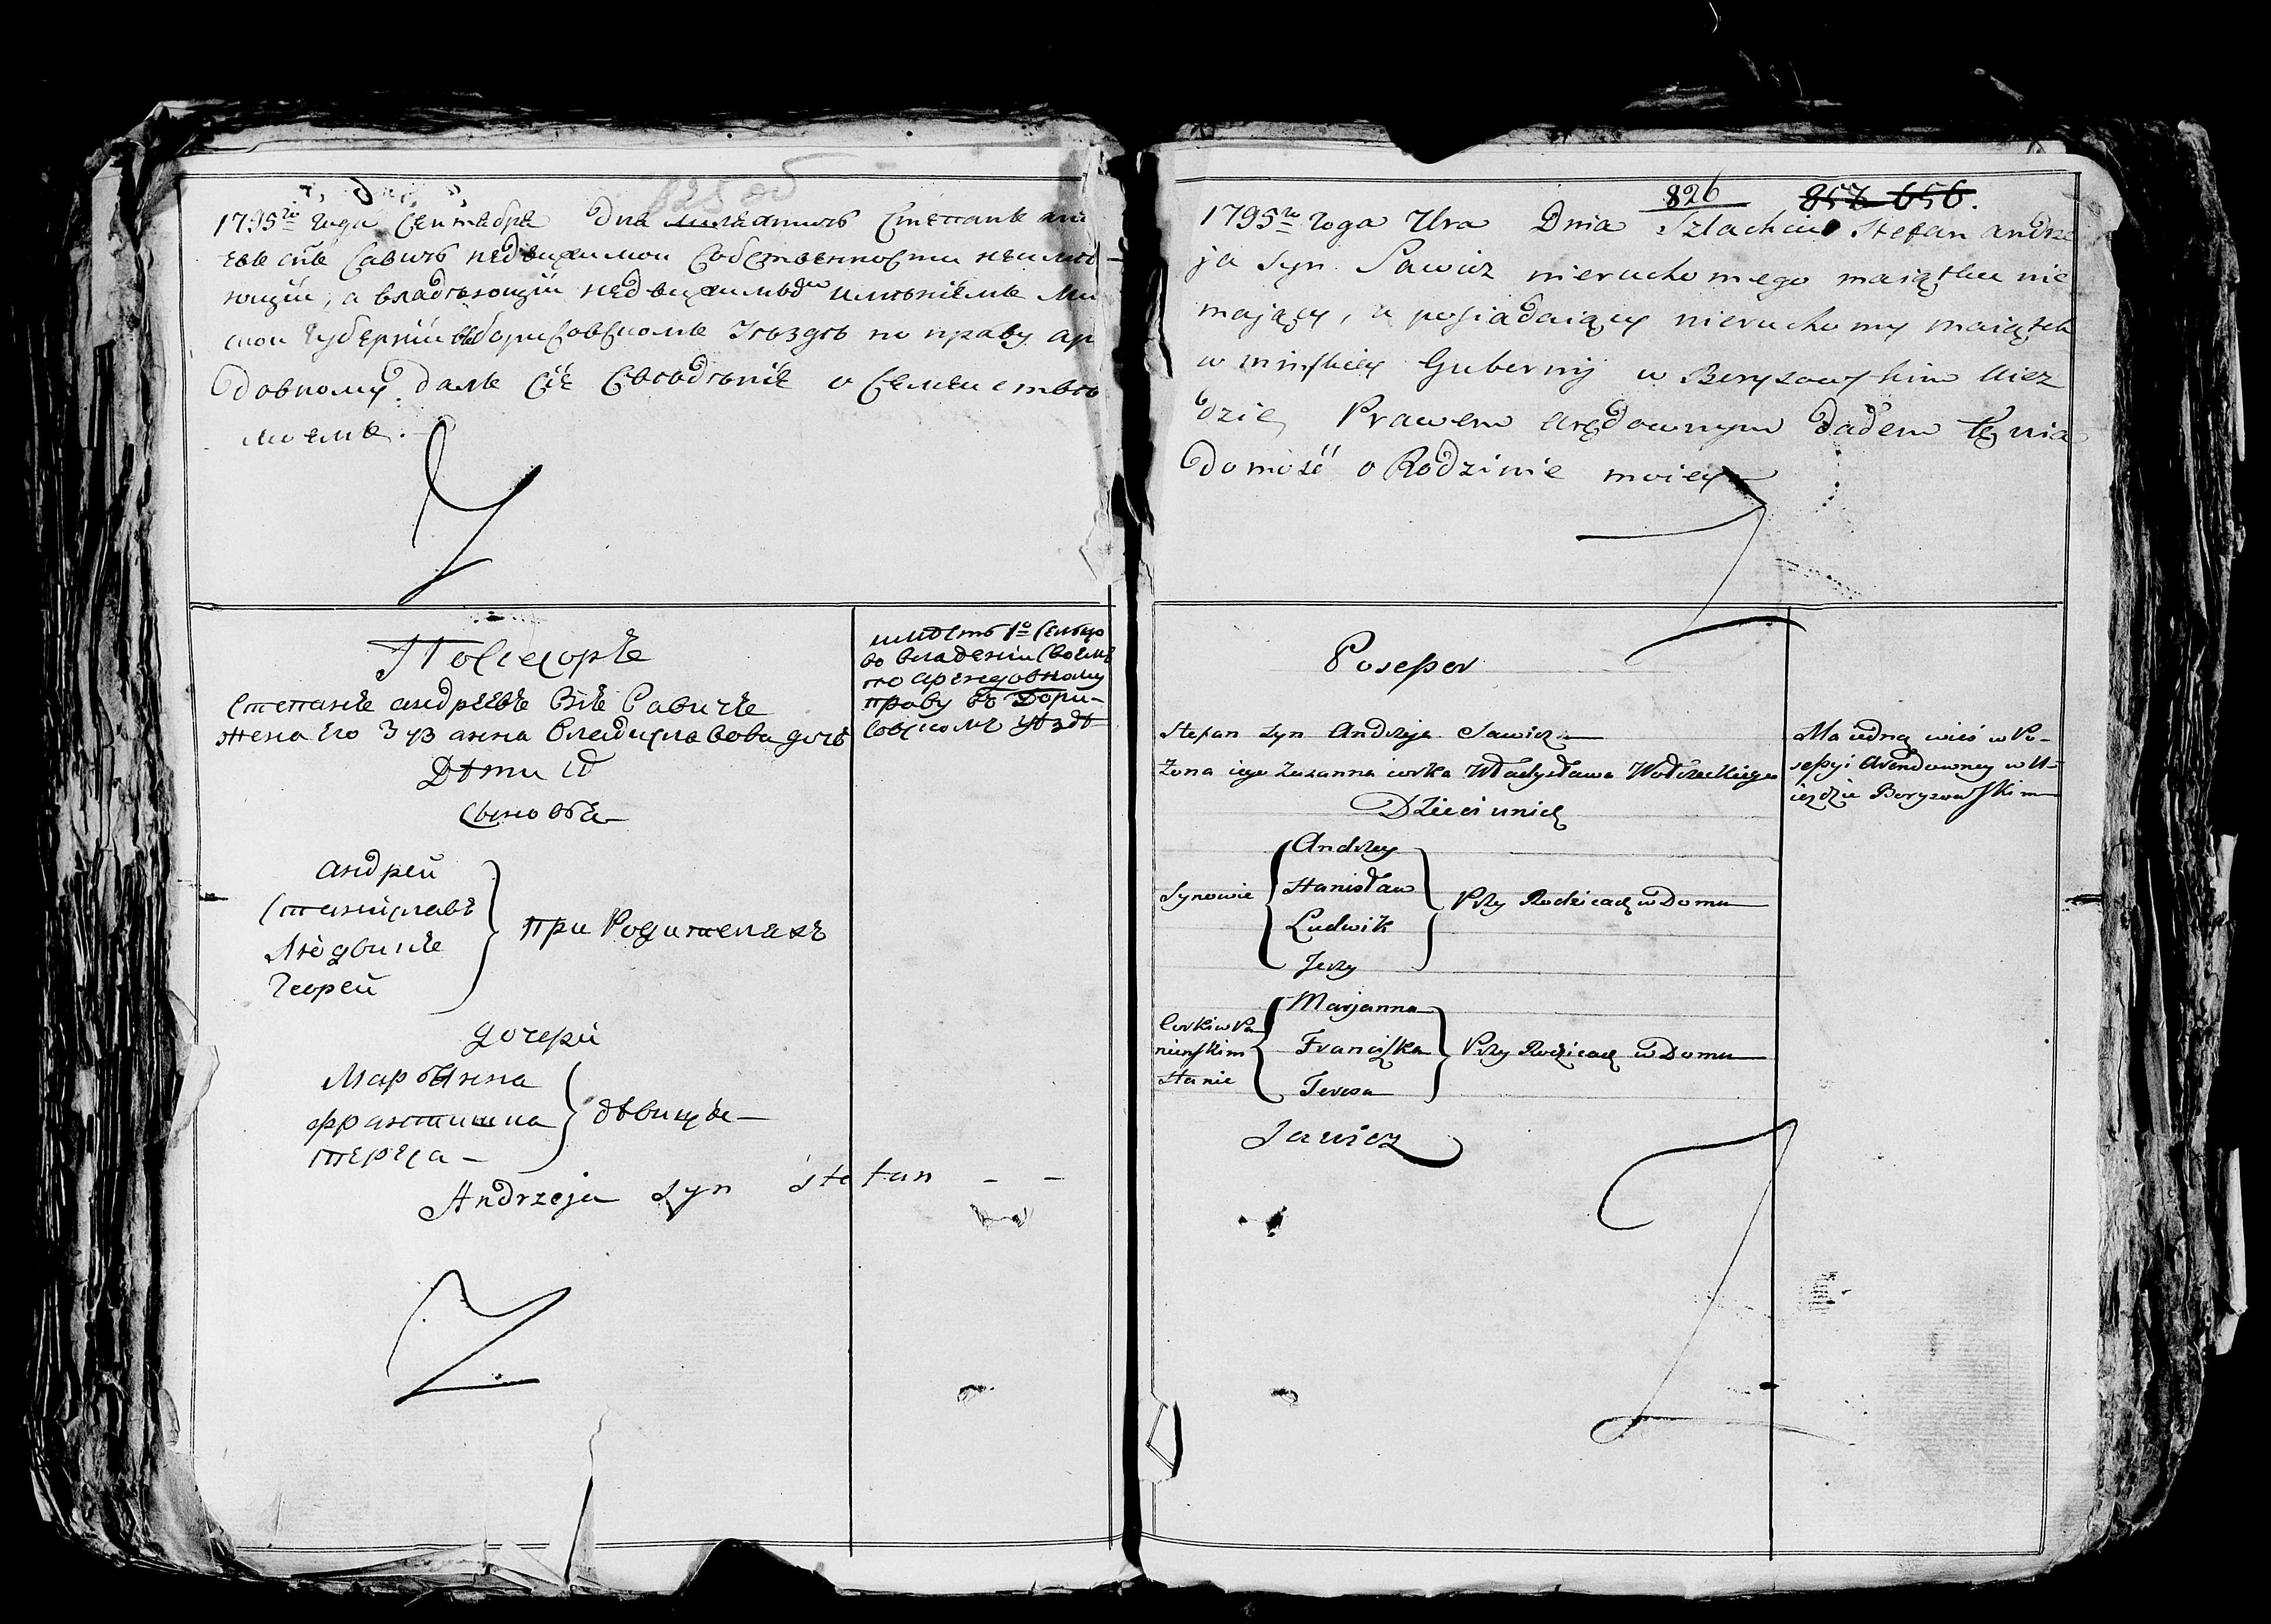 825 об
1795го года Сентебря Дня шляхтичъ Степанъ ан
евъ снъ Савичъ недвижимой собственности неимѣ
ющій, а владѣющій недвижимымъ имѣніемъ Ми
ской губерніи въ борисовскомъ уѣздѣ по праву ар
довному далъ сіе свѣдѣніе о семействѣ
моемъ.
Посесоръ
Степанъ андреевъ Снъ Савичъ
жена Его Зузанна Владиславова дочь
Дѣти
Сыновья
андрей
Станиславъ
Людвикъ
Георгей
при Родителяхъ
дочери
Маріянна
Францишка
тереса
дѣвицы
Andrzeja Syn Stefan
имѣетъ 1о сельцо
во владеніи своемъ
по арендовному
праву въ Бори-
совскомъ уѣздѣ
826 857 656.
1795го Roga 7bra Dnia Szlachcic Stefan Andrze
ja Syn Sawicz nieruchomego maiątku nie
mający, a posiadaiący nieruchomy maiątek
w minskiey Gubernij w Boryzowskim Uiez
dzie, Prawem Arędownym dadem tę wia
domość o Rodzinie moiey
Posessor
Stefan Syn Andrzeja Sawicz
Zona iego Zuzanna corka Władysława Wołczeckiego
Dzieci unich
Synowie
Andrzey
Stanisław
Ludwik
Jerzy
Przy Rodzicach w Domu
Corki w Pa
nienskim
Stanie
Marjanna
Franciszka
Teresa
Przy Rodzicach w Domu
Sawicz
Ma iedną wieś w Po-
sessyi Arendowney w U-
iezdzie Boryzowskim